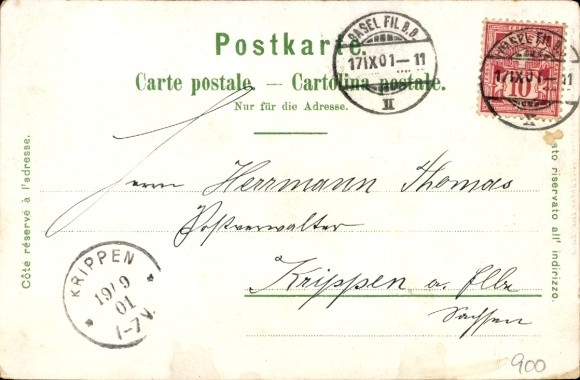 Postkarte.
Carte postale. — Cartolina postale.
Nur für die Adresse.
BASEL FIL. B.B.
17 IX 01 – 11
II
BASEL FIL. B.B.
17 IX 01 – 11
10
Côté réservé à l'adresse.
Herrn Herrmann Thomas
Postverwalter
Krippen a. Elbe
Sachsen
KRIPPEN
19/9
01
1-7V.
riservato all' indirizzo.
900